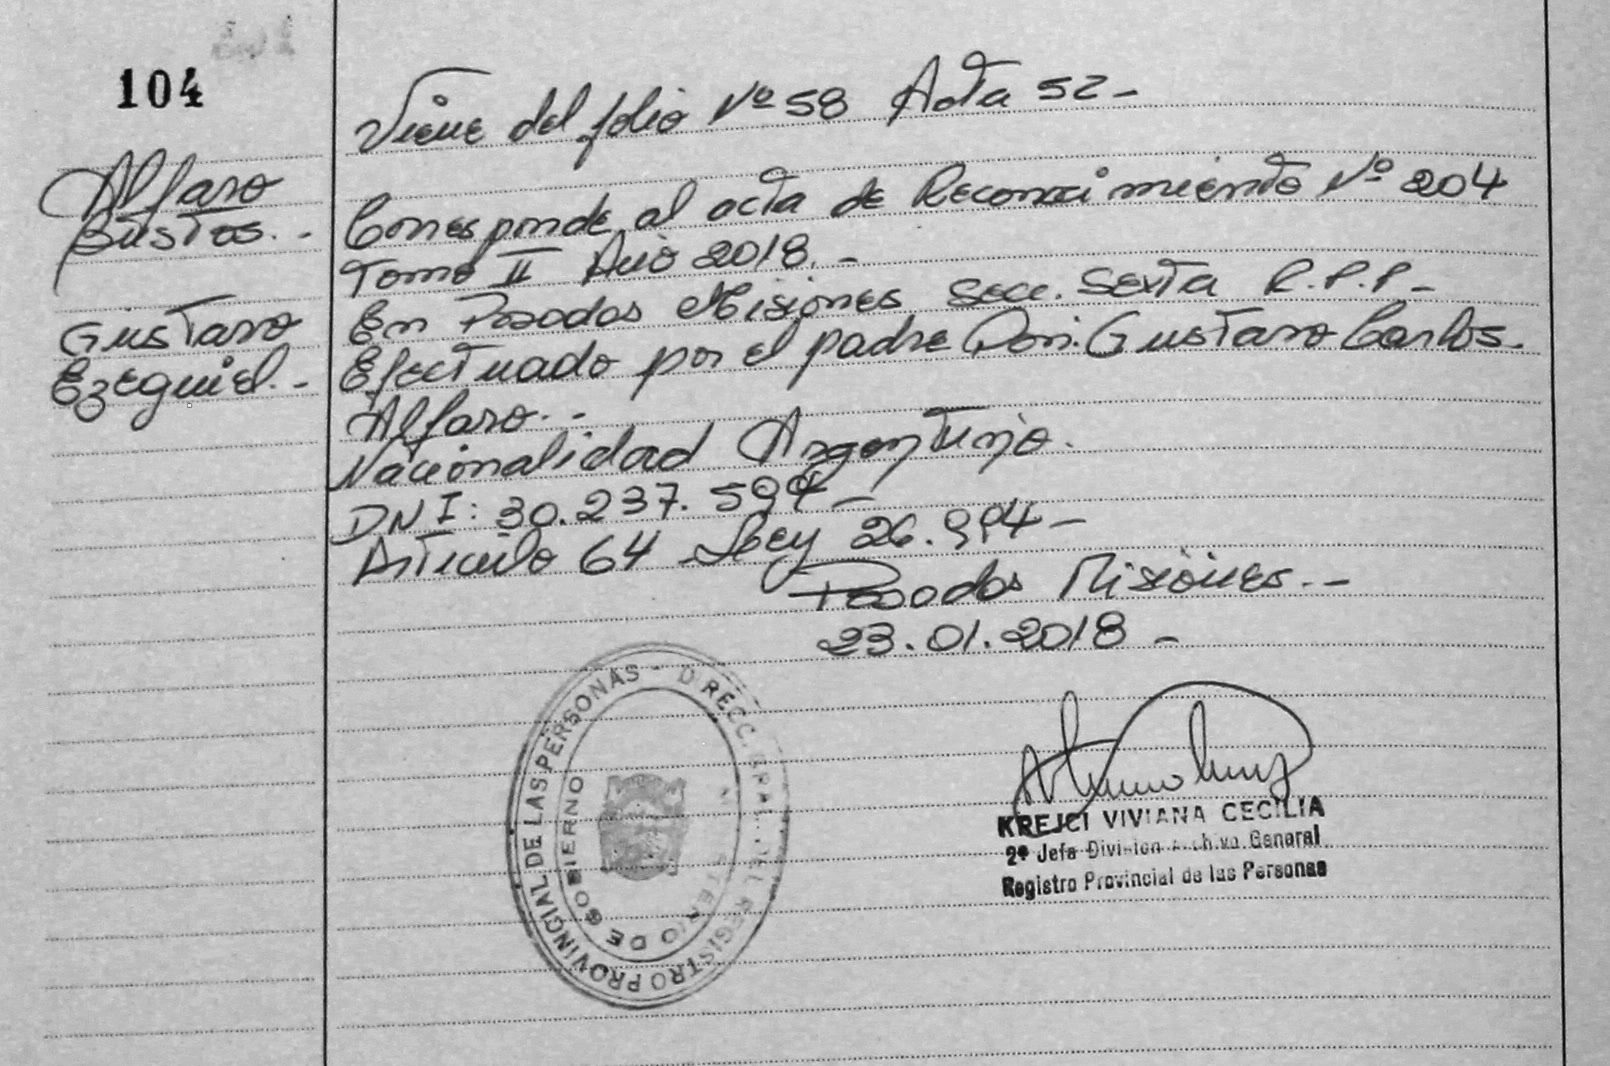 104
Viene del folio Nº 58 Acta 52-
Alfaro
Bustos.-
Gustavo
Ezequiel.-
Corresponde al acta de Reconocimiento Nº 204
Tomo II Año 2018.-
En Posadas Misiones Secc. Sexta R.P.P-
Efectuado por el padre Don: Gustavo Carlos.
Alfaro.-
Nacionalidad Argentino.
DNI: 30.237.594-
Articulo 64 Ley 26.994-
Posadas Misiones.-
23.01.2018-
DIRECC. GRAL. DEL REGISTRO PROVINCIAL DE LAS PERSONAS -
MINISTERIO DE GOBIERNO
KREJCI VIVIANA CECILIA
2º Jefa Division Archivo General
Registro Provincial de las Personas